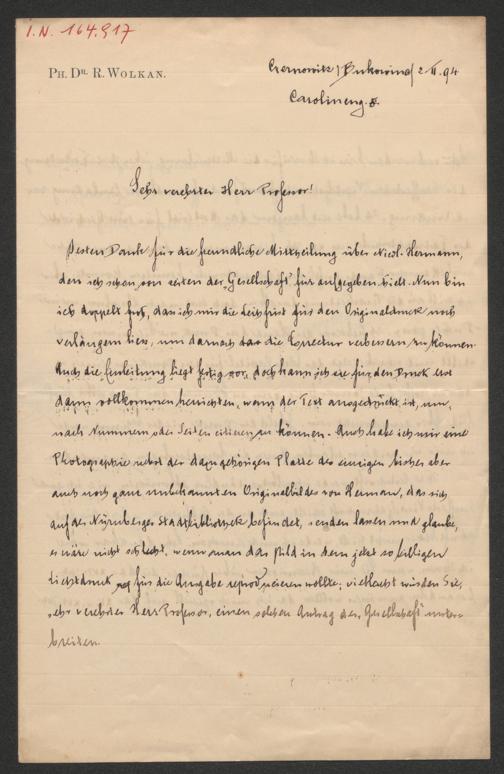 I.N. 164.917
PH. DR. R. WOLKAN.
Czernowitz (Bukowina) 2 II. 94
Carolineng. 8.
Sehr verehrter Herr Professor!
Besten Dank für die freundliche Mittheilung über Nicol. Hermann,
den ich schon von seiten der Gesellschaft für aufgegeben hielt. Nun bin
ich doppelt froh, dass ich mir die Leihfrist für den Originaldruck noch
verlängern liess, um darnach die Correctur verbessern zu können.
Auch die Einleitung liegt fertig vor, doch kann ich sie für den Druck erst
dann vollkommen herrichten, wenn der Text ausgedruckt ist, um
nach Nummern oder Seiten citieren zu können. Auch habe ich mir eine
Photographie nebst der dazugehörigen Platte des einzigen bisher aber
auch noch ganz unbekannten Originalbildes von Herman, das sich
auf der Nürnberger Stadtbibliothek befindet, senden lassen und glaube,
es wäre nicht schlecht, wenn man das Bild in dem jetzt so billigen
Lichtdruck für die Ausgabe reproducieren wollte; vielleicht würden Sie,
sehr verehrter Herr Professor, einen solchen Antrag der Gesellschaft unter-
breiten.